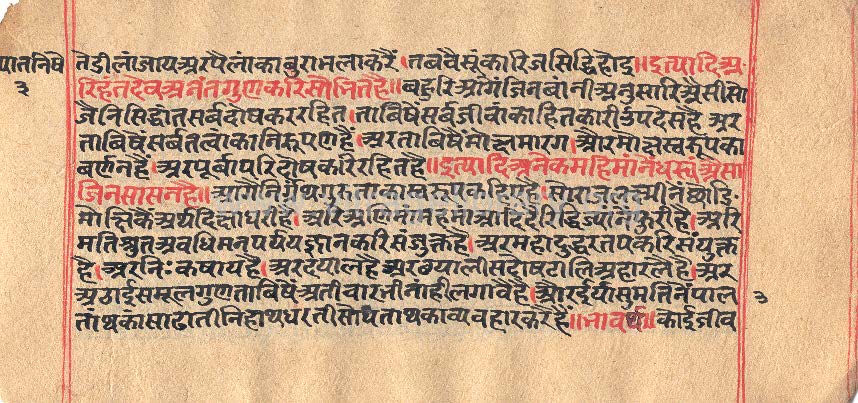 तेडीलांजाय अर पैलांका बुरा मला करैं। तब वैसूं कारिज सिद्धि होइ॥ इत्यादि अ
रिहंत देव अनंत गुण करि सोभित है॥ बहुरि आगैं जिनबांनी अनुसारि असी सो
जैनि सिद्धांत सर्ब दोष कर रहित। ता बिषैं सर्ब जीवांका हितकारी उपदेस है अर
ता बिषैं सर्ब तत्वांका निरूपण है। अर ता बिषैं मोक्ष मारग। और मोक्ष स्वरूपका
बर्णन है। अर पूर्बापरि दोष करि रहित है॥ इत्यादि अनेक महिमांनै धस्यां असा
जिन सासन है॥ आगै निग्रंथ गुरु ताका स्वरूप कहिए है। सो राजलक्ष्मीनं छोडि
मोक्षिकै अर्थ दिक्षा धरी है। अरि अणिमां मरमां आदि रिद्धि ज्यांनै फुरी है। अरि
मति श्रुत अवधि मनपर्यय ज्ञान करि संजुक्त है। अर महा दुद्धर तप करि संयुक्त
है। अर निः कषाय है। अर दयाल है अर छ्यालीस दोष टालि अहार लै है। अर
अठाईस मूलगुण ता बिषैं अतीचार भी नाही लगावै है। और ईर्या सुमतिनें पाल
तां थकां साढा तीनि हाथ धरती सोधता थका व्यवहार करै है॥ भावर्थ॥ कोई जीव
३
३